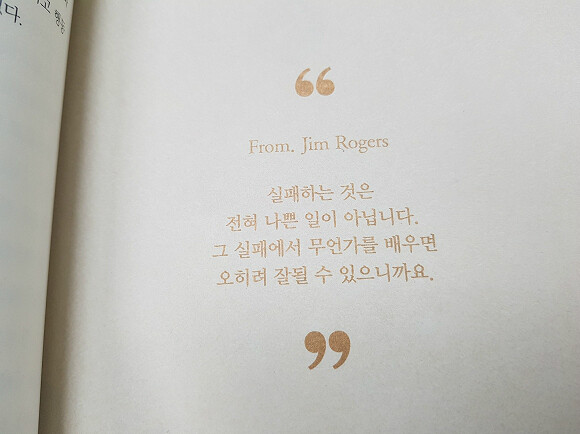 고 행동
다.
“
From. Jim Rogers
실패하는 것은
전혀 나쁜 일이 아닙니다.
그 실패에서 무언가를 배우면
오히려 잘될 수 있으니까요.
”